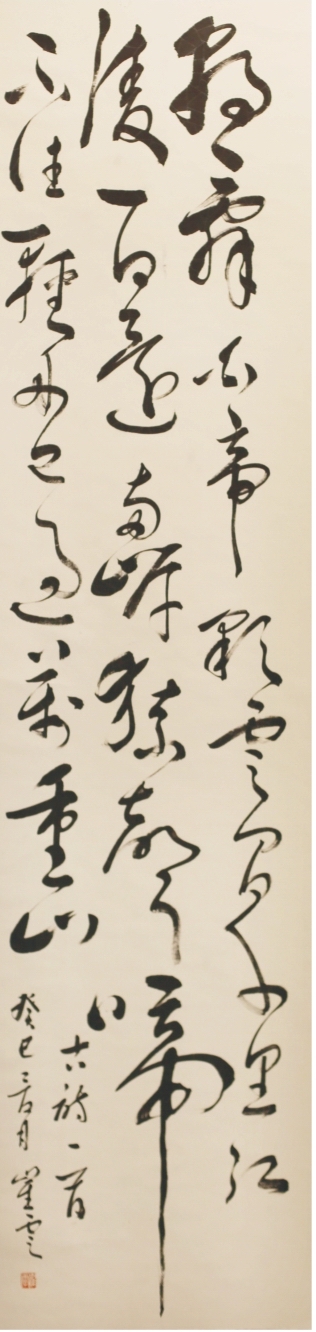 朝辭白帝彩雲間千里江
陵一日還兩岸猿聲啼
不住輕舟已過萬重山
古詩一首
癸巳月崔雲